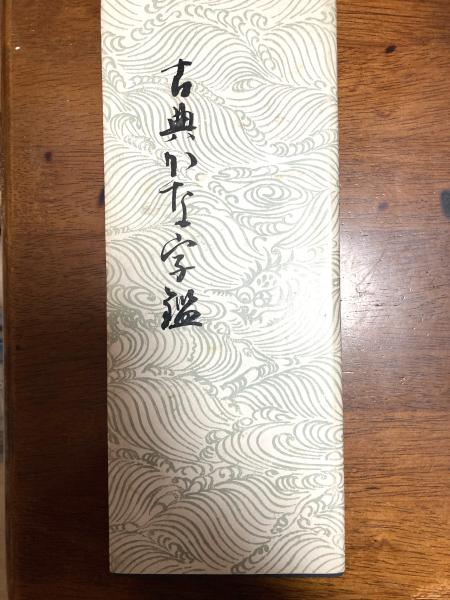 古典かな字鑑